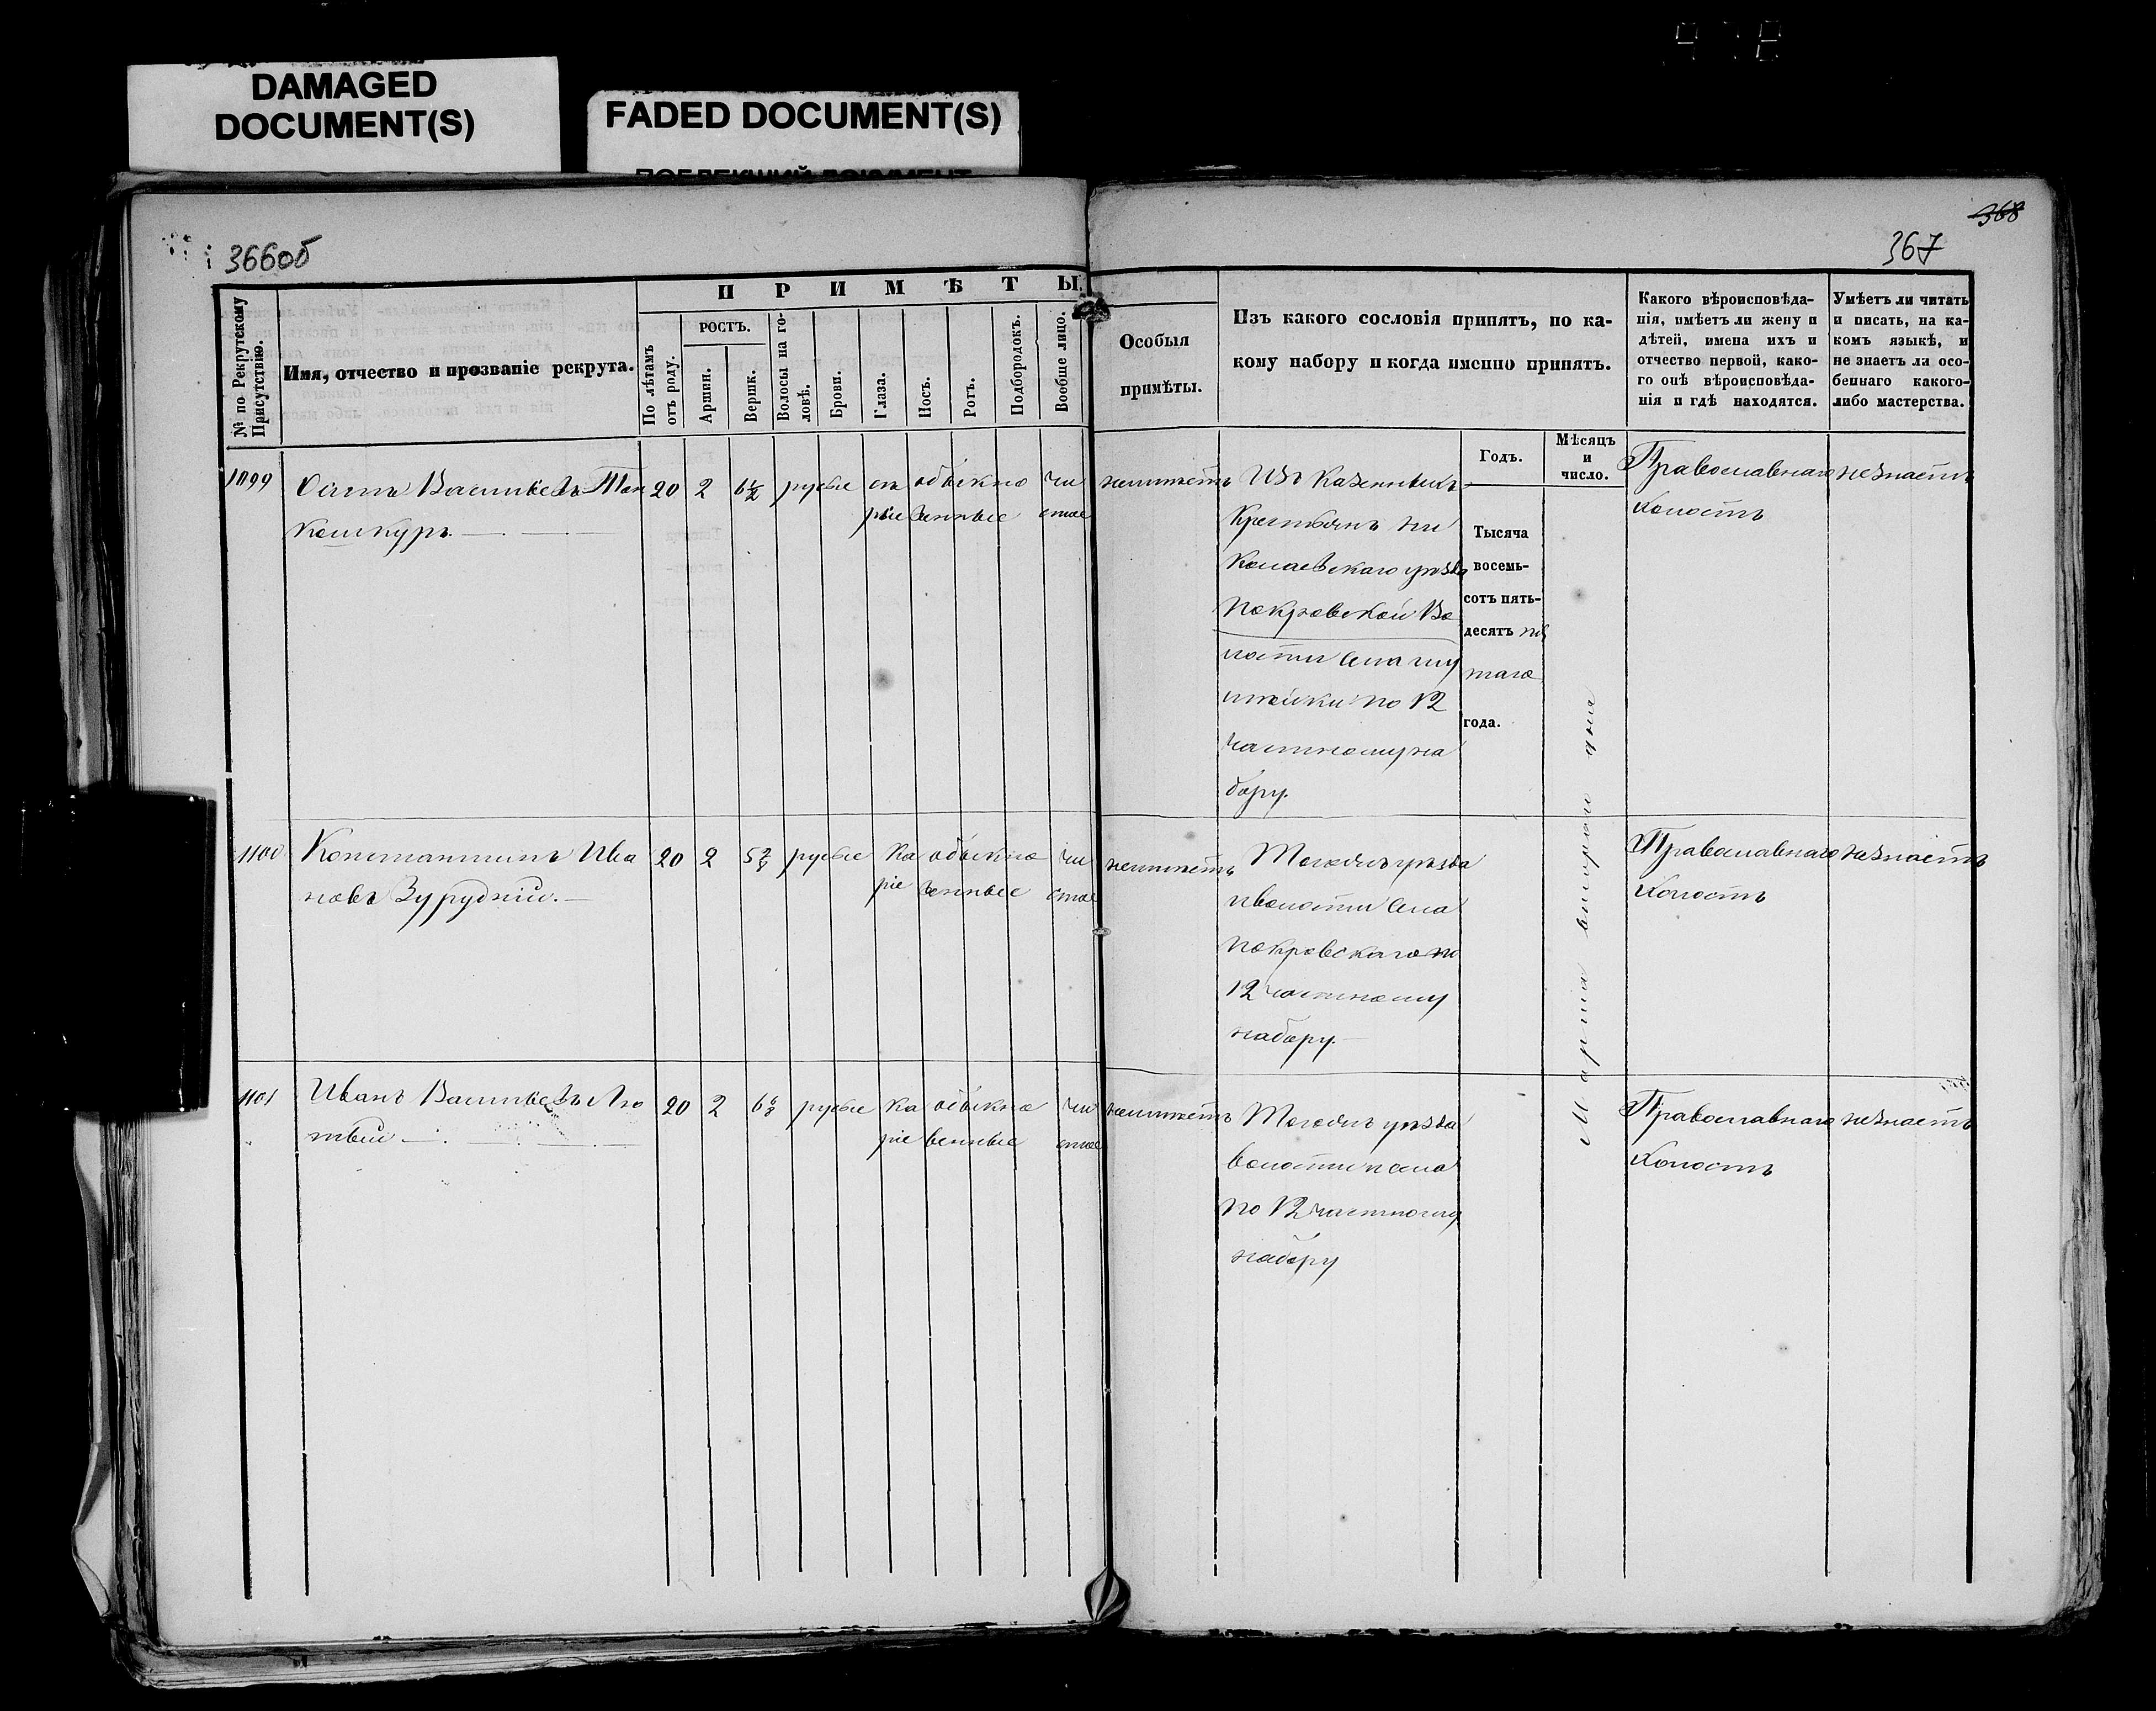 DAMAGED
DOCUMENT(S)
FADED DOCUMENT(S)
366об
368
367
ПРИМѢТЫ.
№ по Рекрутскому
Присутствію.
Имя, отчество и прозваніе рекрута.
По лѣтамъ
отъ роду.
РОСТЪ.
Аршин.
Вершк.
Волосы на го-
ловѣ.
Брови.
Глаза.
Носъ.
Ротъ.
Подбородокъ.
Вообще лицо.
Особыя
примѣты.
Изъ какого сословія принятъ, по ка-
кому набору и когда именно принятъ.
Годъ.
Мѣсяцъ
и
число.
Какого вѣроисповѣда-
нія, имѣетъ ли жену и
дѣтей, имена ихъ и
отчество первой, како-
го онѣ вѣроисповѣда-
нія и гдѣ находятся.
Умѣетъ ли читать
и писать, на ка-
комъ языкѣ, и
не знаетъ ли осо-
беннаго какого-
либо мастерства.
1099
Осипъ Васильевъ
20 2 6½ русые сѣ обыкно чи
рые венные стое
неимѣетъ
Изъ казенныхъ
Крестьянъ Ни
колаевскаго уѣзда
Покровской Во
лости села
по 12
частному на
бору.
Тысяча
восемь-
сотъ пять-
десятъ пя
таго
года.
Марта втораго дня
Православнаго
холостъ
незнаетъ
1100
Константинъ Ива
новъ Зурудній.
20 2 русые ка обыкно чи
ріе венные стое
неимѣетъ
Тогожъ уѣзда
и волости села
Покровскаго по
12 частному
набору.
Православнаго
холостъ
незнаетъ
1101
Иванъ Васильевъ Лю
тый
20 2 русые ка обыкно чи
ріе венные стое
неимѣетъ
Тогожъ уѣзда
волости и села
по 12 частному
набору
Православнаго
холостъ
незнаетъ